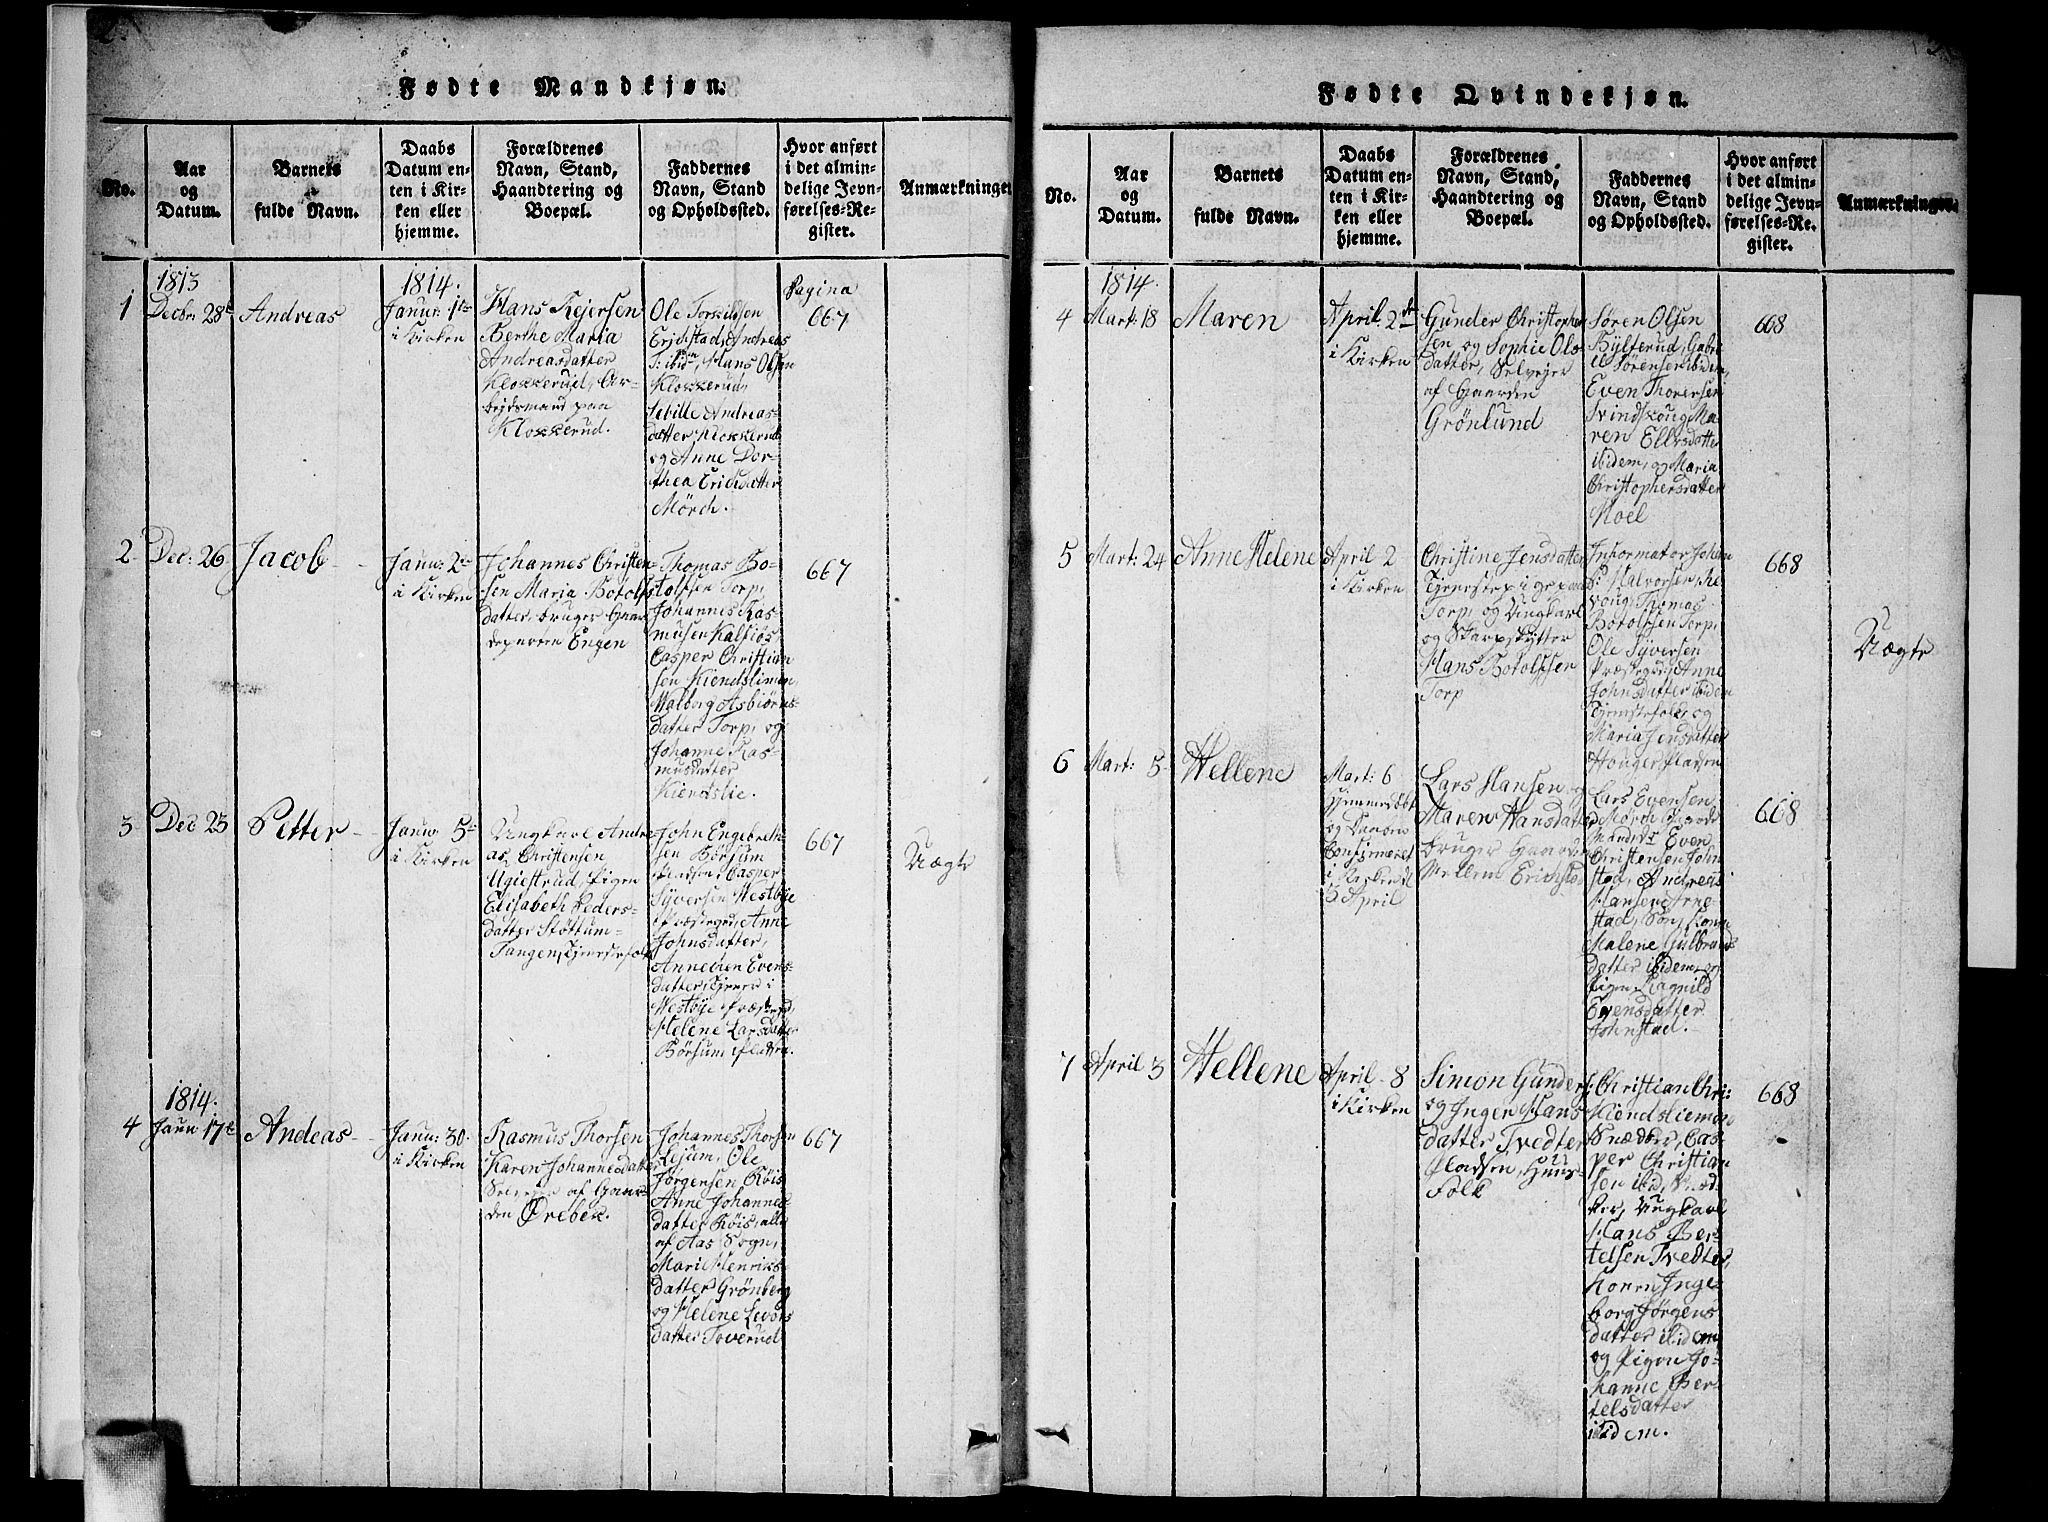 Fødte Mandkjøn.
No.
Aar
og
Datum.
Barnets
fulde Navn.
Daabs
Datum en-
ten i Kir-
ken eller
hjemme.
Forældrenes
Navn, Stand,
Haandtering og
Boepæl.
Faddernes
Navn, Stand
og Opholdssted.
Hvor anført
i det almin-
delige Jevn-
førelses-Re-
gister.
Anmærkninger
1
1813
Decbr: 28de
Andreas
1814.
Janu: 1te
i Kirken
Hans Rejersen
Berthe Maria
Andreasdatter
Klokkerud, Ar-
bejdsmand paa
Klokkerud.
Ole Torkildsen
Erichstad, Andreas
Hans Olsen
Klokkerud,
Sebille Andreas-
datter Klokkerud
og Anne Dor-
thea Erichsdatter
Mörch.
Pagina
667
2
Dec: 26
Jacob
Janu: 2den
i Kirken
Johannes Christen-
sen Maria Botolfs-
datter, bruger Gaar-
departen Engen
Thomas Bo-
tolfsen Torp,
Johannes Ras-
musen Kalsiös
Casper Christian
sen Kiendslimoen
Walborg Asbiörns-
datter Torp, og
Johanne Ras-
musdatter
Kiendslie.
667
3
Dec 23
Petter
Janu: 5te
i Kirken
Ungkarl Andre
as Christensen
Ugiestrud, Pigen
Elisabeth Peders-
datter Stöttum-
Tangen, Tjenestefolk
John Engebreth-
sen Börsum
Pladsen, Casper
Syversen Westbye
Præstegrd, Anne
Johnsdatter,
Annechen Evens-
datter, Tjener i
Westbye Præstegrd,
Helene Larsdatter
Börsum Pladsen.
667
Uægte
4
1814.
Janu 17de
Andeas
Janu: 30.
i Kirken
Rasmus Thorsen
Karen Johannesdatter
Selvejer af Gaar-
den Örebek.
Johannes Thorsen
Lejum, Ole
Jörgensen Röis
Anne Johannes-
datter Röis, alle
af Aas Sogn,
Mari Henriks-
datter Grönberg
og Helene Livors
datter Toverud
667
Fødte Qvindekjøn.
No.
Aar
og
Datum.
Barnets
fulde Navn.
Daabs
Datum en-
ten i Kir-
ken eller
hjemme.
Forældrenes
Navn, Stand,
Haandtering og
Boepæl.
Faddernes
Navn, Stand
og Opholdssted.
Hvor anført
i det almin-
delige Jevn-
førelses-Re-
gister.
Anmærkninger.
4
1814.
Mart: 18
Maren
April: 2den
i Kirken
Gunder Christopher
sen og Sophie Ols-
datter, Selvejer
af Gaarden
Grönlund
Sören Olsen
Bylterud, Gabri
el Sörensen ibidem,
Even Thorersen
Svindskoug, Ma
ren Ellesdatter
ibidem, og Maria
Christophersdatter
Moel
668
5
Mart: 24
Anne Helene
April 2
i Kirken
Christine Jensdatter
Torp, og Ungkarl
og Skarpskytter
Hans Botolfsen
Torp
Informator Johan
Halvorsen
Thomas
Botolfsen Torp,
Ole Syversen
Præstegrd, Anne
Johnsdatter ibidem
Tjenestefolk, og
Maria Jensdatter
Houger Pladsen
668
Uægte
6
Mart: 5
Hellene
Mart: 6
hjemmedöbt
og Daaben
Confirmeret
i Kirken d
3 April
Lars Hansen og
Maren Hansdatter
bruger Gaarden
Mellem Erichstad
Lars Evensen
Mörch
Even
Christensen John
stad, Andreas
Hansen Arne
stad, Kone
Malene Gulbrands
datter ibidem, og
Pigen Ragnild
Evensdatter
Johnstad.
668
7
April 3
Hellene
April 8
i Kirken
Simon Gunders:
og Inger Hans
datter Tvedter
Pladsen, Huus-
Folk
Christian Chri:
Kiendsliemoe
Snedker, Cas-
per Christian
sen ibid, Sned
ker, Ungkarl
Hans Ber-
telsen Tvedter,
Konen Inge-
borg Jörgens
datter ibidem
og Pigen Jo-
hanne Ber-
telsdatter
ibidem.
668